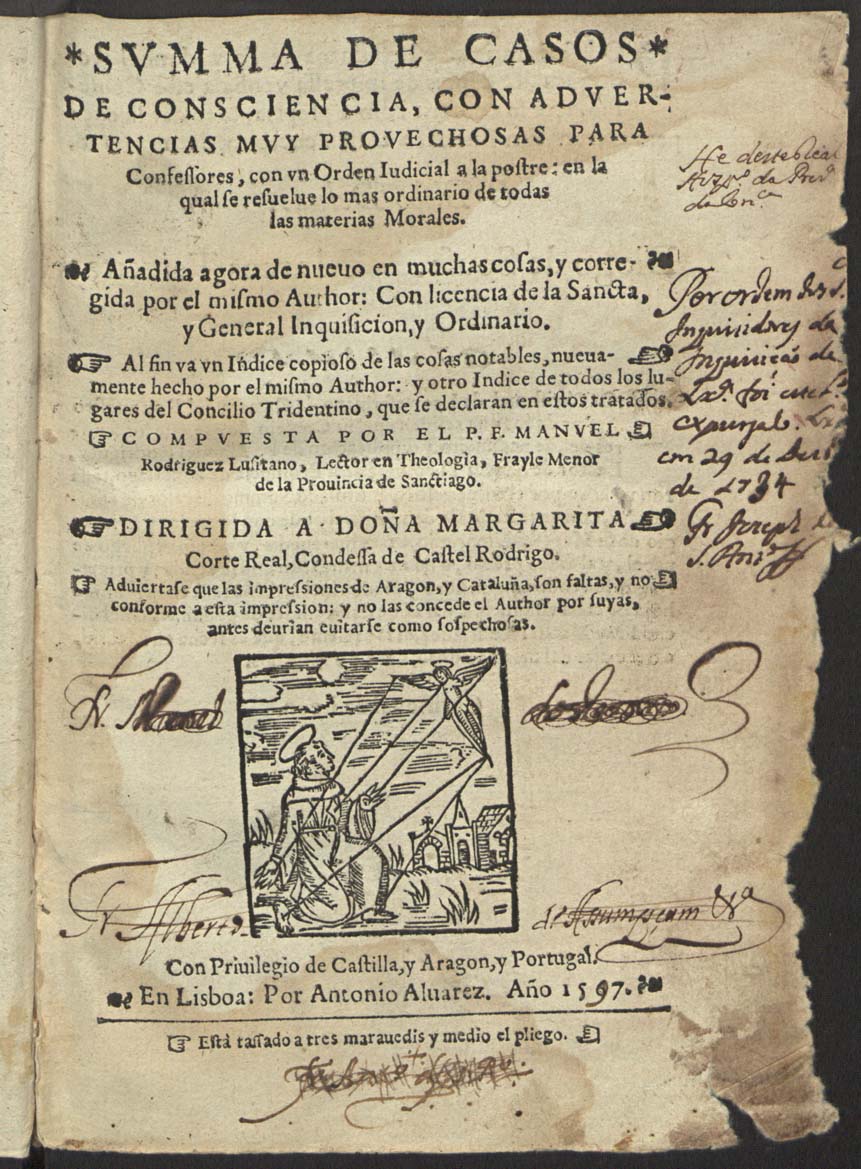 *SVMMA DE CASOS*
DE CONSCIENCIA, CON ADVER-
TENCIAS MVY PROVECHOSAS PARA
Confessores, con vn Orden Iudicial a la postre: en la
qual se resuelue lo mas ordinario de todas
las materias Morales.
Añadida agora de nueuo en muchas cosas, y corre-
gida por el mismo Author: Con licencia de la Sancta,
y General Inquisicion, y Ordinario.
Al fin va vn Indice copioso de las cosas notables, nueua-
mente hecho por el mismo Author: y otro Indice de todos los lu-
gares del Concilio Tridentino, que se declaran en estos tratados.
COMPVESTA POR EL P. F. MANVEL
Rodriguez Lusitano, Lector en Theologia, Frayle Menor
de la Prouincia de Sanctiago.
DIRIGIDA A DOÑA MARGARITA
Corte Real, Condessa de Castel Rodrigo.
Aduiertase que las impressiones de Aragon, y Cataluña, son faltas, y no
conforme a esta impression: y no las concede el Author por suyas,
antes deurian euitarse como sospechosas.
Fr. Alberto
de Assumpçam
Con Priuilegio de Castilla, y Aragon, y Portugal.
En Lisboa: Por Antonio Aluarez. Año 1597.
Està tassado a tres marauedis y medio el pliego.
He deste
da
Por ordem dos S.
Inquisidores da
Inquisicaõ de
foi este
expurgado
em 29 de
de 1734
Fr Joseph de
S.